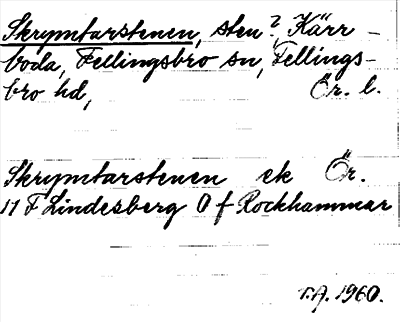 Skrymtarstenen, sten?, Kärr-
boda, Fellingsbro sn, Fellings-
bro hd, Ör. l.
Skrymtarstenen ek Ör.
11 F Lindesberg O f Rockhammar
r.A. 1960.